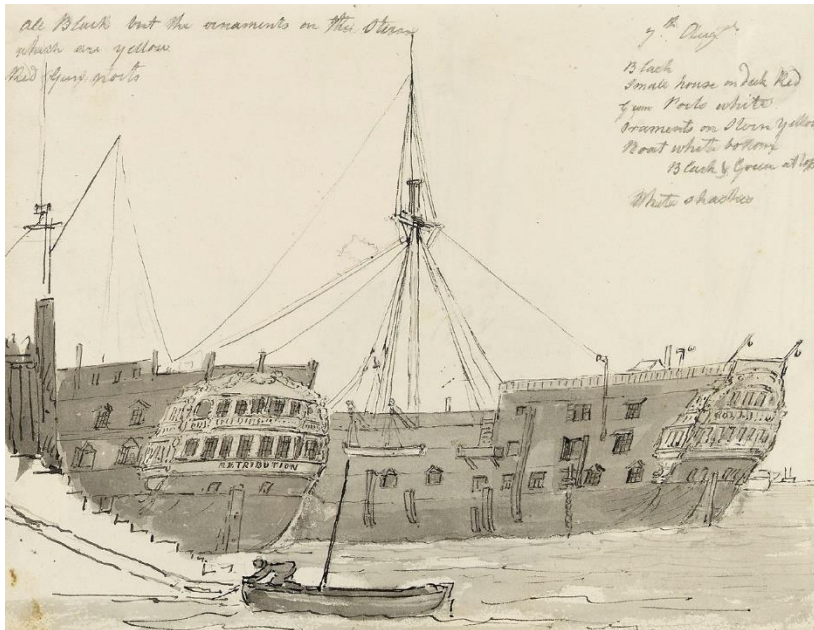 all Black but the ornaments on the Stern
which are yellow
Red Gun ports
7th Augt
Black
Small house on deck Red
Gun Ports white
ornaments on Stern Yellow
Boat white bottom
Black & Green at top
White
RETRIBUTION